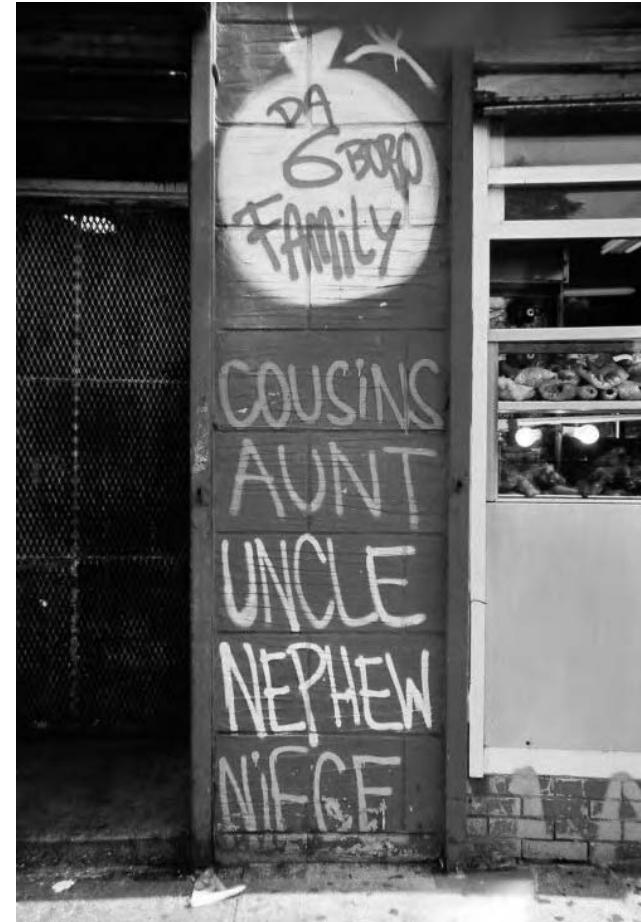 DA
6 BORO
FAMiLY
COUSiNS
AUNT
UNCLE
NEPHEW
NiECE